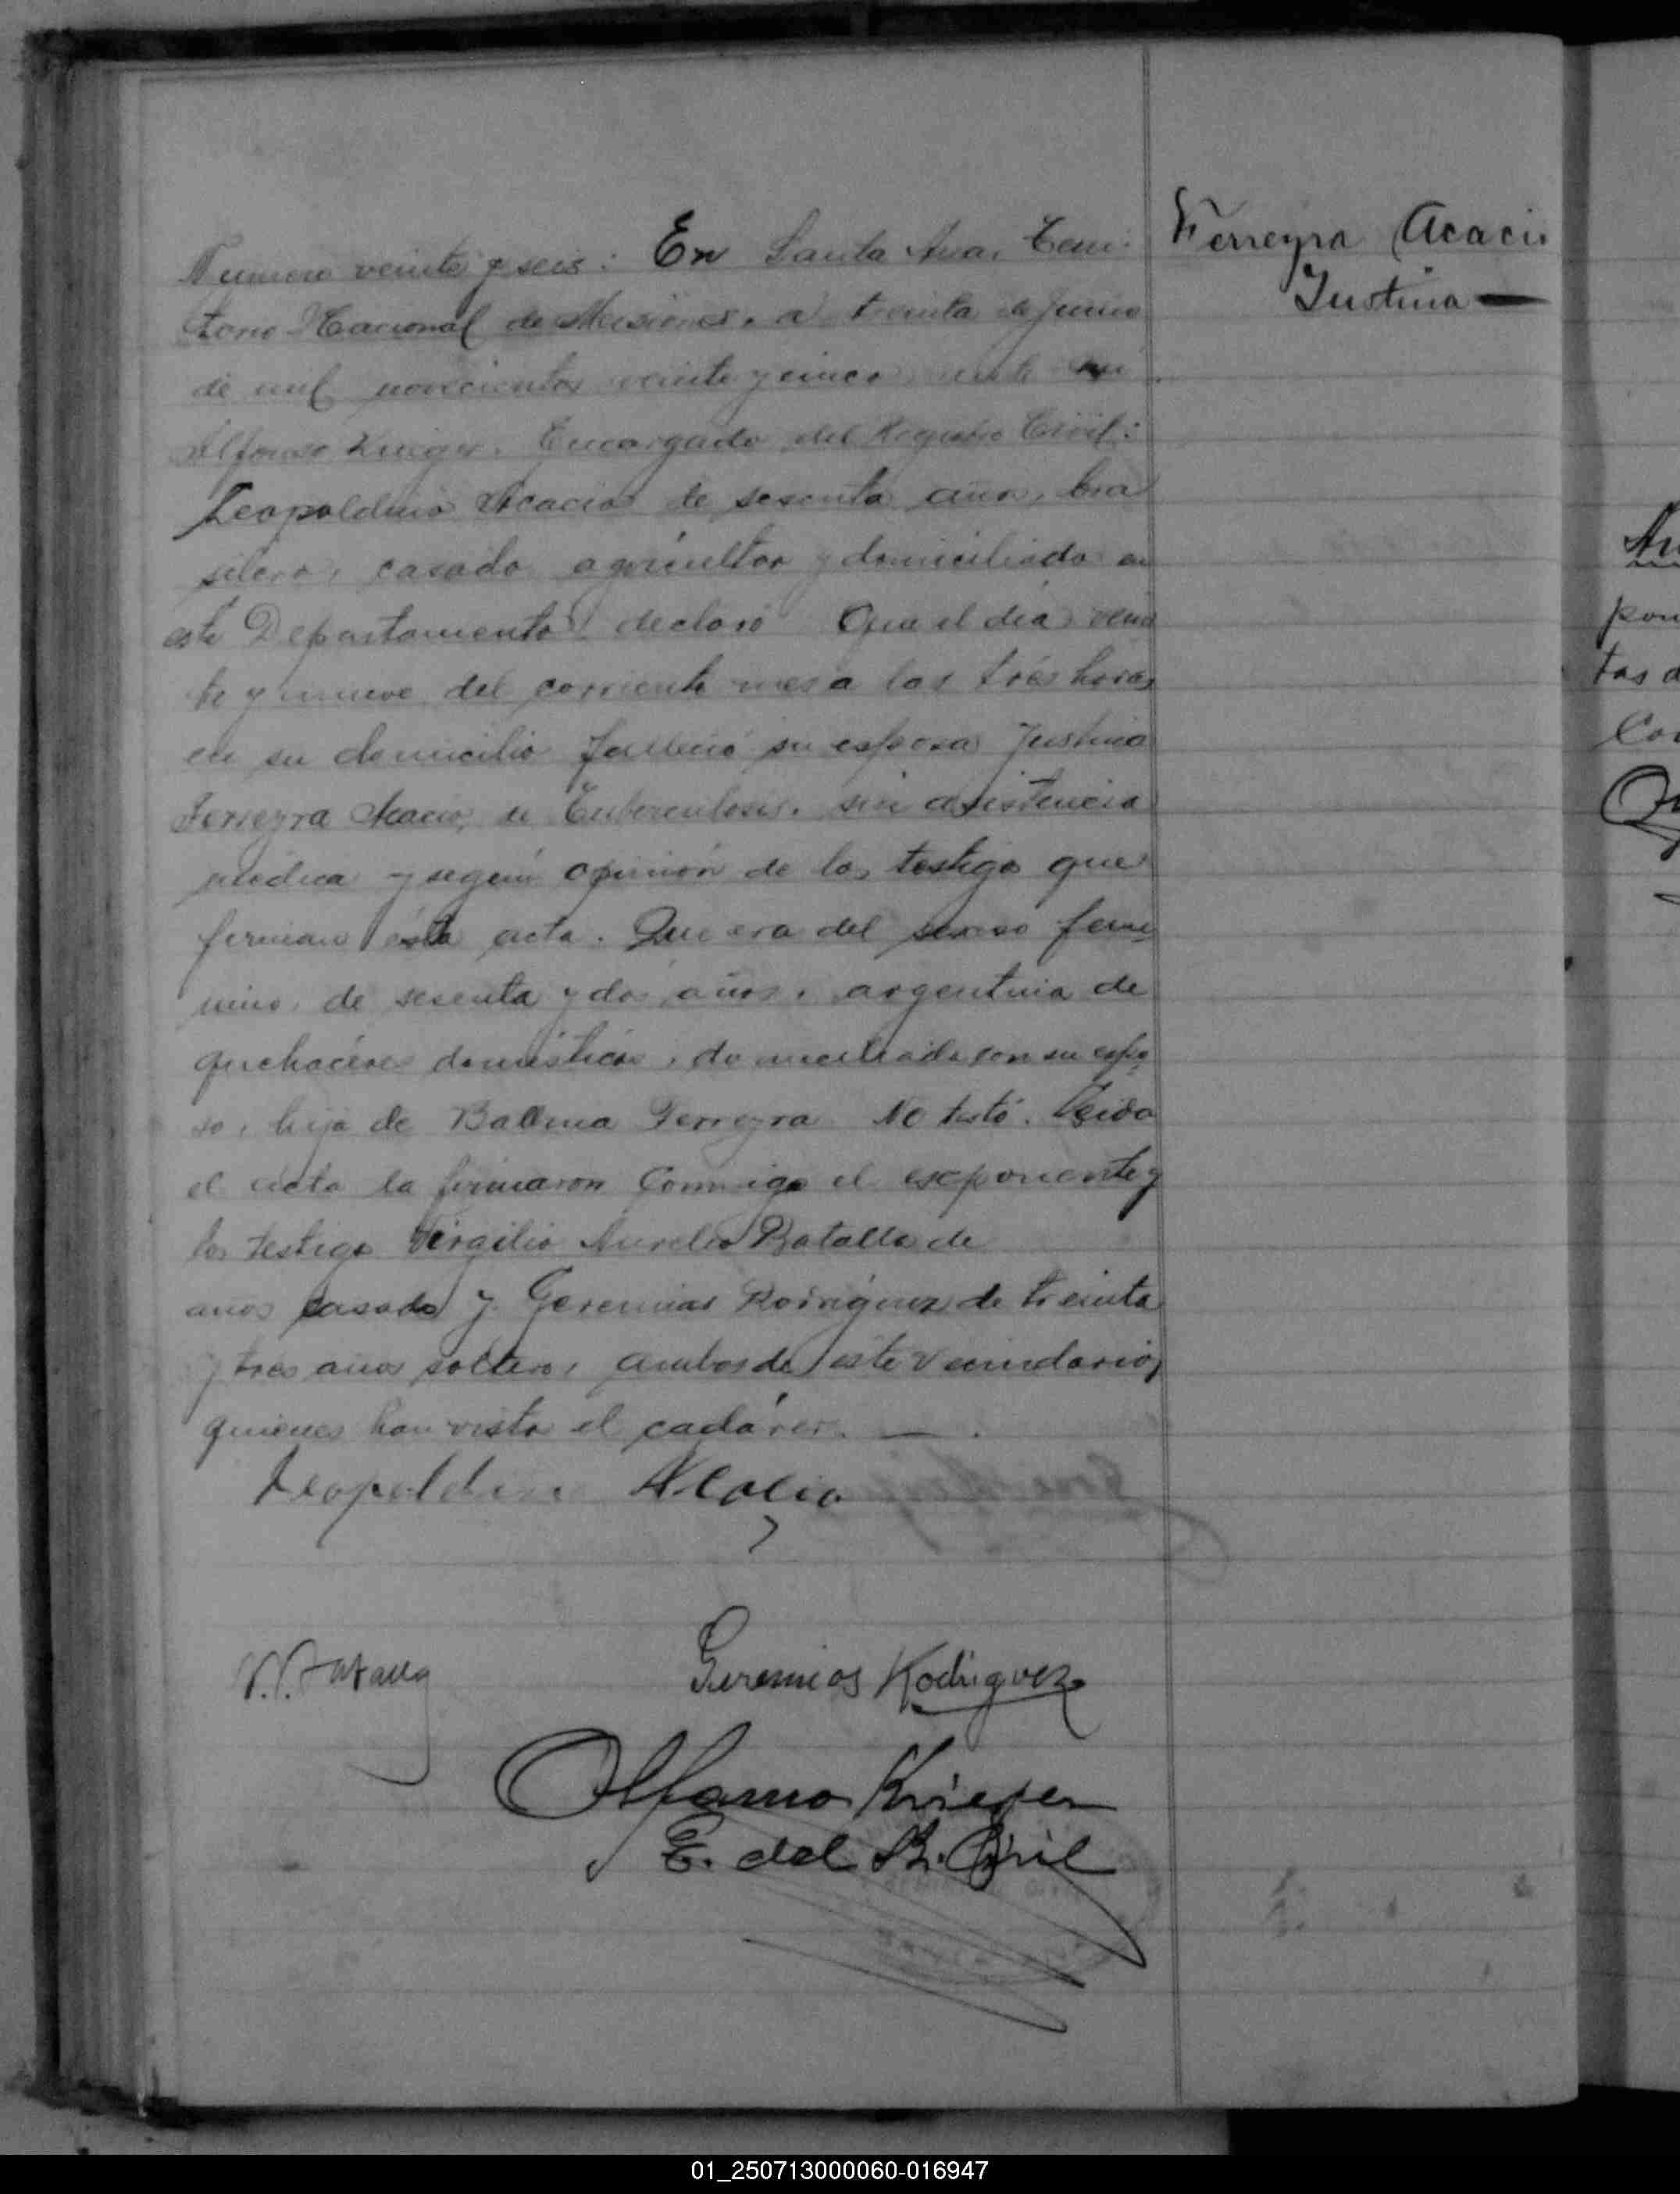 Numero veinte y seis: En Santa Ana, Terri-
torio Nacional de Misiones, a treinta de Junio
de mil novecientos veinte y cinco ante mi
Alfonso Krieger, Encargado del Registro Civil:
Leopoldino Acacio de sesenta años, bra
silero, casado agricultor y domiciliado en
este Departamento declaró Que el día vein
te y nueve del corriente mes a las trés horas
en su domicilio falleció su esposa Justina
Ferreyra Acacio, de Tuberculosis, sin asistencia
médica y según opinión de los testigo que
firman ésta acta. Que era del sexso feme
nino, de sesenta y dos años, argentina de
quehacéres domésticos, domiciliada con su espo
so, hija de Balbina Ferreyra No testó. Leida
el acta la firmaron Conmigo el esxponente y
los testigo Virgilio Aurelio Batalla de
años casado y Geremias Rodriguez de treinta
y tres años soltero, ambos de este vecindario,
quienes han visto el cadáver. —
Leopoldino Acacio
V. Batalla
Geremias Rodriguez
Alfonso Krieger
E. del R. Civil
Ferreyra Acacio
Justina —
An
pon
tas d
Con
01_250713000060-016947